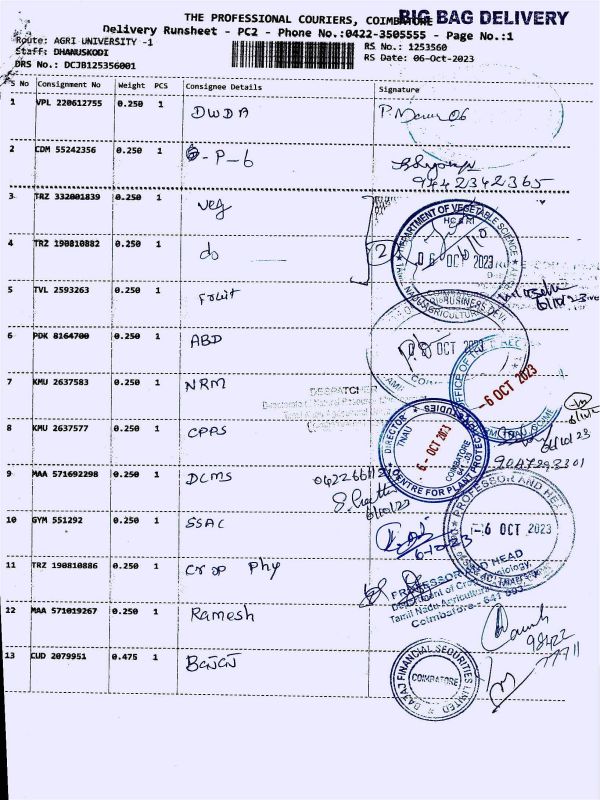 THE PROFESSIONAL COURIERS, COIMBATORE
BIG BAG DELIVERY
Delivery Runsheet - PC2 - Phone No.:0422-3505555 - Page No.:1
Route: AGRI UNIVERSITY -1
RS No.: 1253560
Staff: DHANUSKODI
RS Date: 06-Oct-2023
DRS No.: DCJB125356001
S No Consignment No Weight PCS Consignee Details Signature
1 VPL 220612755 0.250 1 DWDA
2 CDM 55242356 0.250 1 -P-6
9442342365
3 TRZ 332001839 0.250 1 veg
4 TRZ 190810882 0.250 1 do 2
DEPARTMENT OF VEGETABLE SCIENCE
HC & RI
06 OCT 2023
5 TVL 2593263 0.250 1 Fruit
6/10/23
6 PDK 8164700 0.250 1 ABD
OCT 2023
-6 OCT 2023
7 KMU 2637583 0.250 1 NRM
DESPATCHED
8 KMU 2637577 0.250 1 CPPS
DIRECTOR
TNAU
6 - OCT 2023
COIMBATORE
CENTRE FOR PLANT PROTECTION STUDIES
6/10/23
9 MAA 571692298 0.250 1 DCMS
6/10/23
10 GYM 551292 0.250 1 SSAC
PROFESSOR AND HEAD
-6 OCT 2023
11 TRZ 190810886 0.250 1 Crop Phy
PROFESSOR AND HEAD
Department of Crop Physiology,
Tamil Nadu Agricultural University
Coimbatore - 641 003
12 MAA 571019267 0.250 1 Ramesh
98422
77711
13 CUD 2079951 0.475 1
BAJAJ FINANCIAL SECURITIES LIMITED
COIMBATORE